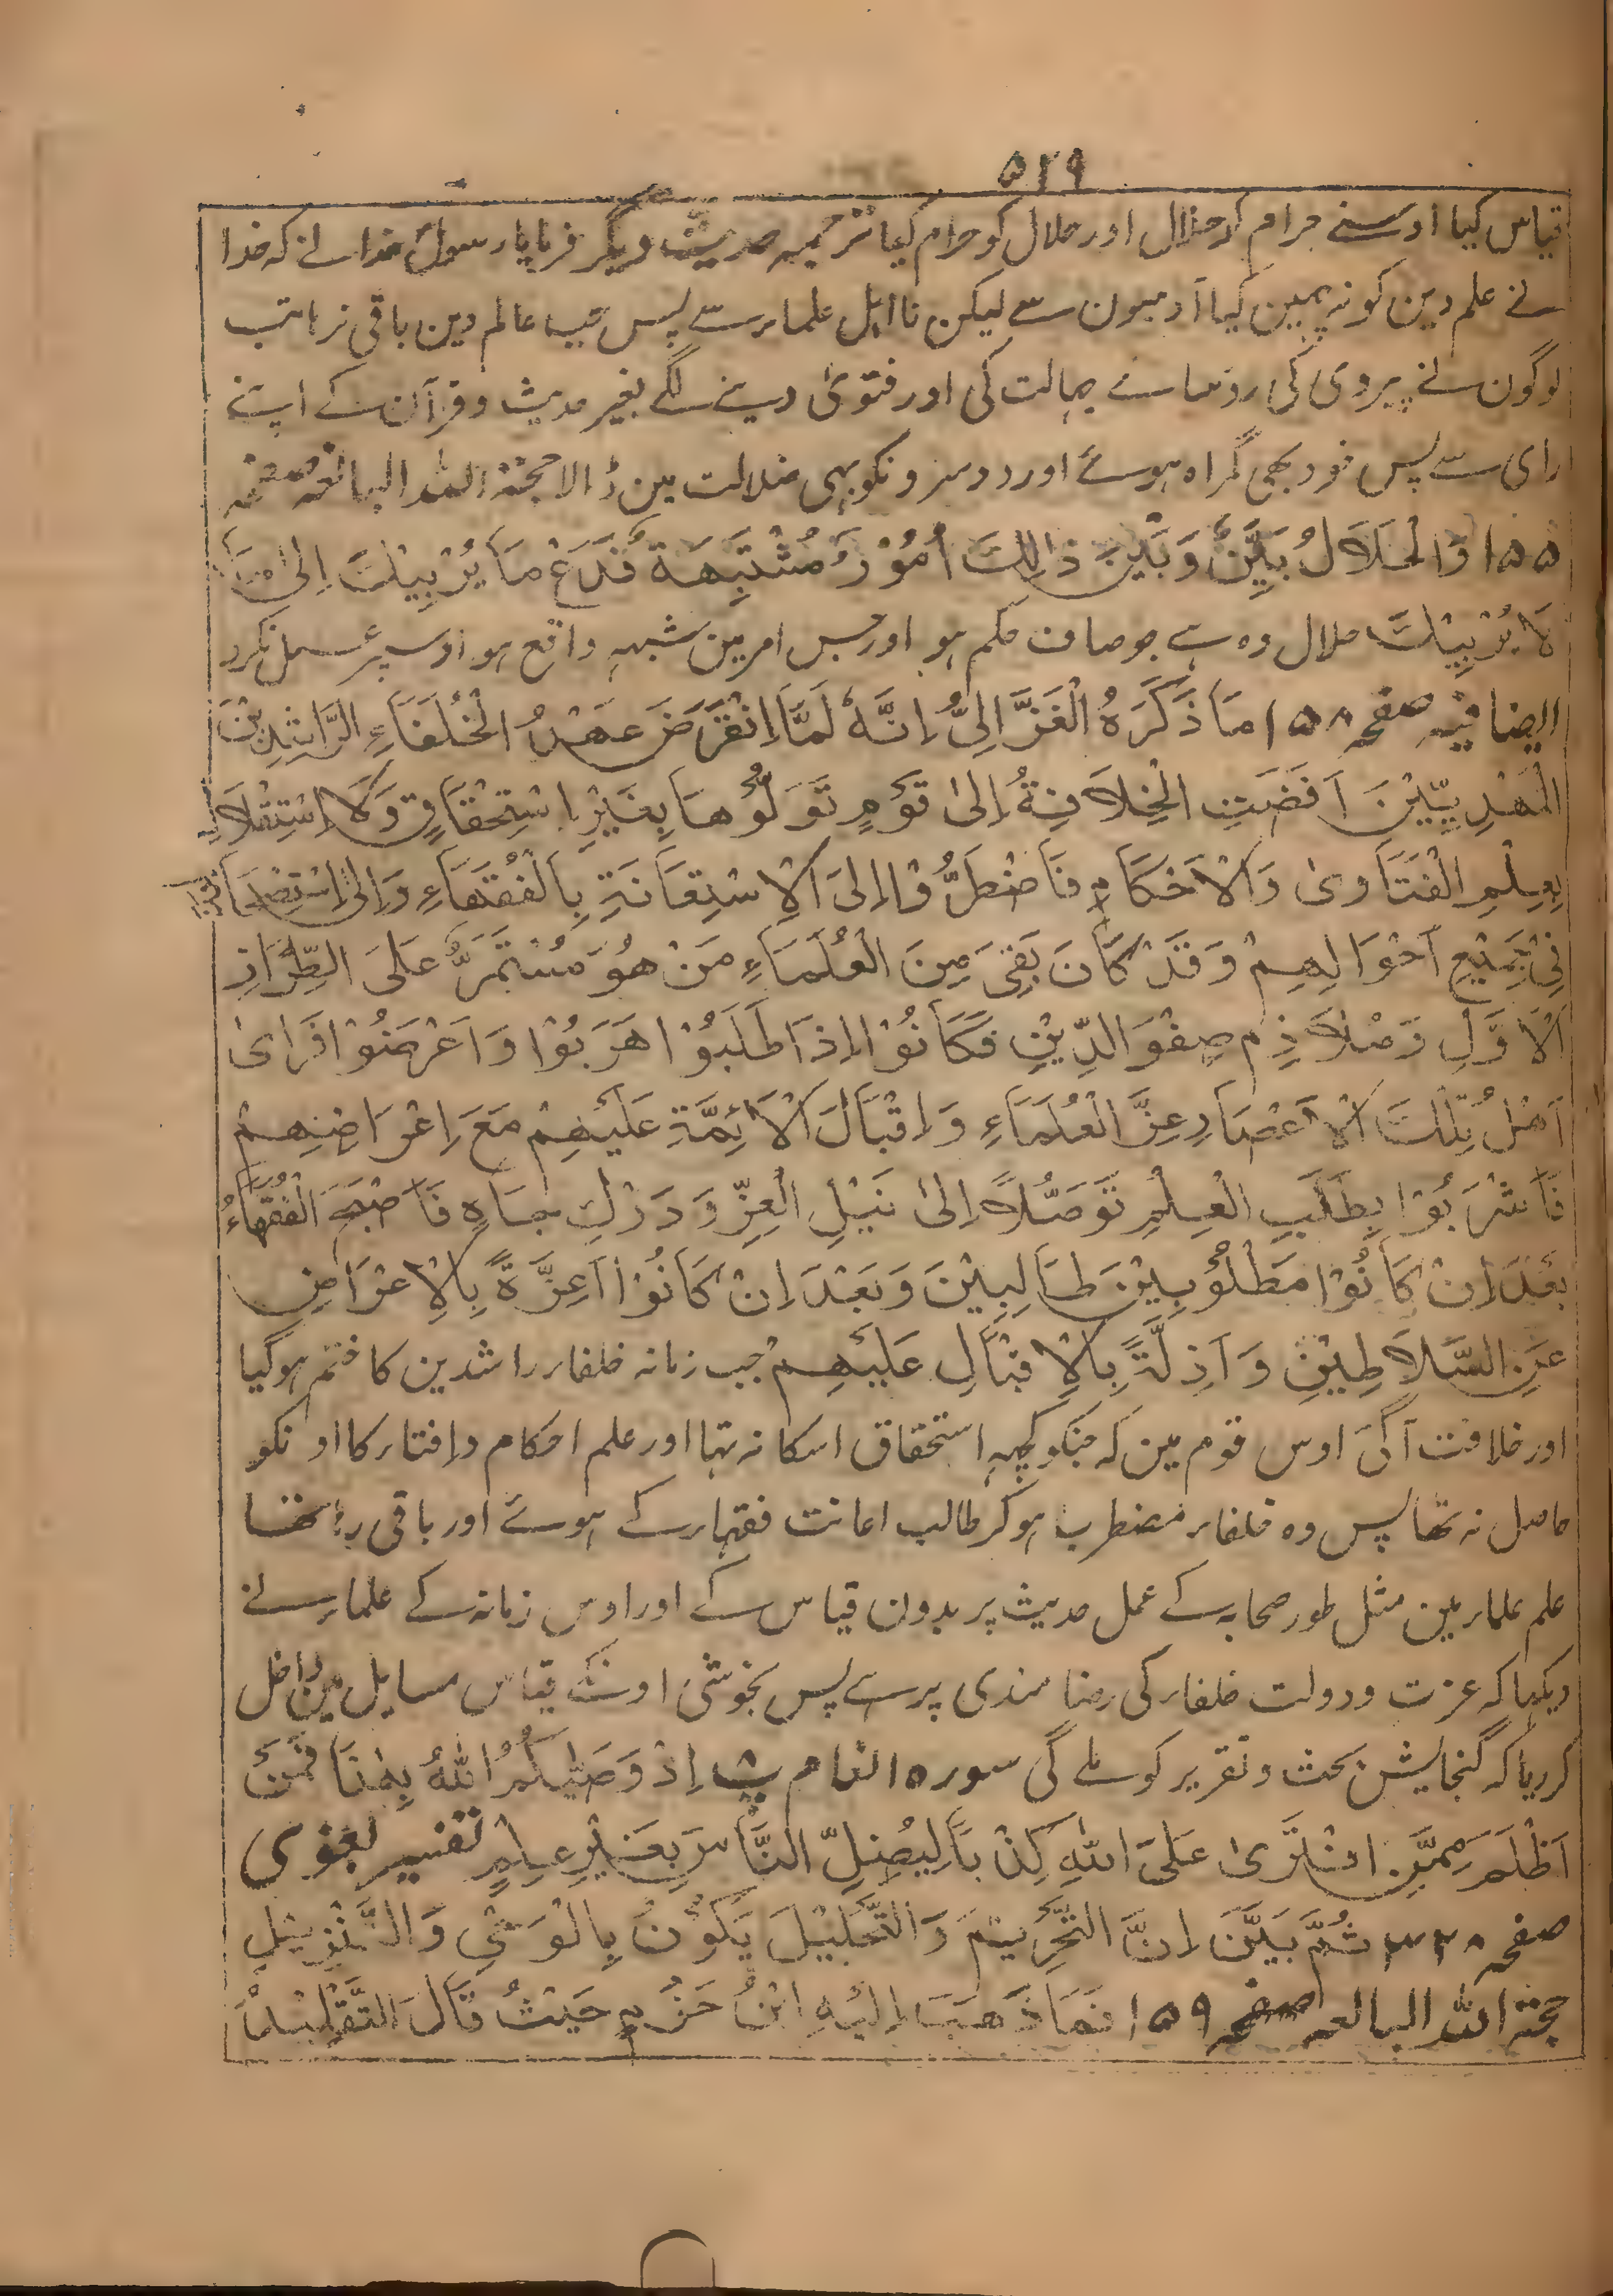 ۵۲۹
قیاس کیا اوسنے حرام کو حلال اور حلال کو حرام کیا ترجمہ حدیث دیگر فرمایا رسول خدا نے کہ خدا
نے علم دین کو نہیں کیا آدمیون سے لیکن نااہل علماء سے پس جب عالم دین باقی نرہا تب
لوگون نے پیروی کی روسا جہالت کی اور فتویٰ دینے لگے بغیر حدیث و قرآن کے اپنے
رای سے پس خود بھی گمراہ ہوئے اور دوسرونکو بہی ضلالت مین ڈالا حجۃ اللہ البالغہ صفحہ
۱۵۵ وَالْحَلَالُ بَیِّنٌ وَبَیْنَ ذٰلِکَ اُمُوْرٌ مُشْتَبِهَةٌ فَدَعْ مَا یُرِیْبُکَ اِلیٰ مَا
لَا یُرِیْبُکَ حلال وہ ہے جو صاف حکم ہو اور جس امر مین شبہہ واقع ہو اوسپر عمل نکرو
ایضا فیہ صفحہ ۱۵۸ مَا ذَکَرَهُ الْغَزَّالِیُّ اِنَّهٗ لَمَّا اِنْقَرَضَ عَهْدُ الْخُلَفَاءِ الرَّاشِدِیْنَ
الْمَهْدِیِّیْنَ اَفَضَتِ الْخِلَافَةُ اِلیٰ قَوْمٍ تَوَلَّوْهَا بِغَیْرِ اسْتِحْقَاقٍ وَلَا اسْتِقْلَالٍ
بِعِلْمِ الْفَتَاویٰ وَالْاَحْکَامِ فَاضْطَرُّوْا اِلیَ الْاِسْتِعَانَةِ بِالْفُقَهَاءِ وَاِلیٰ اِسْتِصْحَابِهِمْ
فِیْ جَمِیْعِ اَحْوَالِهِمْ وَقَدْ کَانَ بَقِیَ مِنَ الْعُلَمَاءِ مَنْ هُوَ مُسْتَمِرٌّ عَلَی الطِّرَازِ
الْاَوَّلِ وَمُلَازِمٌ صِفْوَ الدِّیْنِ فَکَانُوْا اِذَا طَلَبُوْا هَرَبُوْا وَاَعْرَضُوْا فَرَایٰ
اَهْلُ تِلْکَ الْاَعْصَارِ عِزَّ الْعُلَمَاءِ وَاِقْبَالَ الْاَئِمَّةِ عَلَیْهِمْ مَعَ اِعْرَاضِهِمْ
فَاَشْرَبُوْا بِطَلَبِ الْعِلْمِ تَوَصُّلًا اِلیٰ نَیْلِ الْعِزِّ وَدَرْکِ جَاهٍ فَاَصْبَحَ الْفُقَهَاءُ
بَعْدَ اِنْ کَانُوْا مَطْلُوْبِیْنَ طَالِبِیْنَ وَبَعْدَ اِنْ کَانُوْا اَعِزَّةً بِالْاِعْرَاضِ
عَنِ السَّلَاطِیْنِ وَاَذِلَّةً بِالْاِقْبَالِ عَلَیْهِمْ جب زمانہ خلفاء راشدین کا ختم ہوگیا
اور خلافت آگئی اوس قوم مین کہ جنکو کچہہ استحقاق اسکا نہ تہا اور علم احکام وافتاء کا اونکو
حاصل نہ تھا پس وہ خلفاء مضطرب ہوکر طالب اعانت فقہاء کے ہوئے اور باقی رہا تھا
علم علماء مین مثل طور صحابہ کے عمل حدیث پر بدون قیاس کے اور اوس زمانہ کے علماء نے
دیکہا کہ عزت و دولت خلفاء کی رضا مندی پر ہے پس بخوشی اونکے قیاس مسایل مین داخل
کردیا کہ گنجایش بحث و تقریر کو ملے گی سورہ انعام پ۸ اِذْ وَصّٰیکُمُ اللّٰهُ بِهٰذَا فَمَنْ
اَظْلَمُ مِمَّنِ افْتَریٰ عَلَی اللّٰهِ کَذِبًا لِیُضِلَّ النَّاسَ بِغَیْرِ عِلْمٍ تفسیر بغوی
صفحہ ۳۲۸ ثُمَّ بَیَّنَ اِنَّ التَّحْرِیْمَ وَالتَّحْلِیْلَ یَکُوْنُ بِالْوَحْیِ وَالتَّنْزِیْلِ
حجۃ اللہ البالغہ صفحہ ۱۵۹ فَمَا ذَهَبَ اِلَیْهِ ابْنُ حَزْمٍ حَیْثُ قَالَ التَّقْلِیْدُ